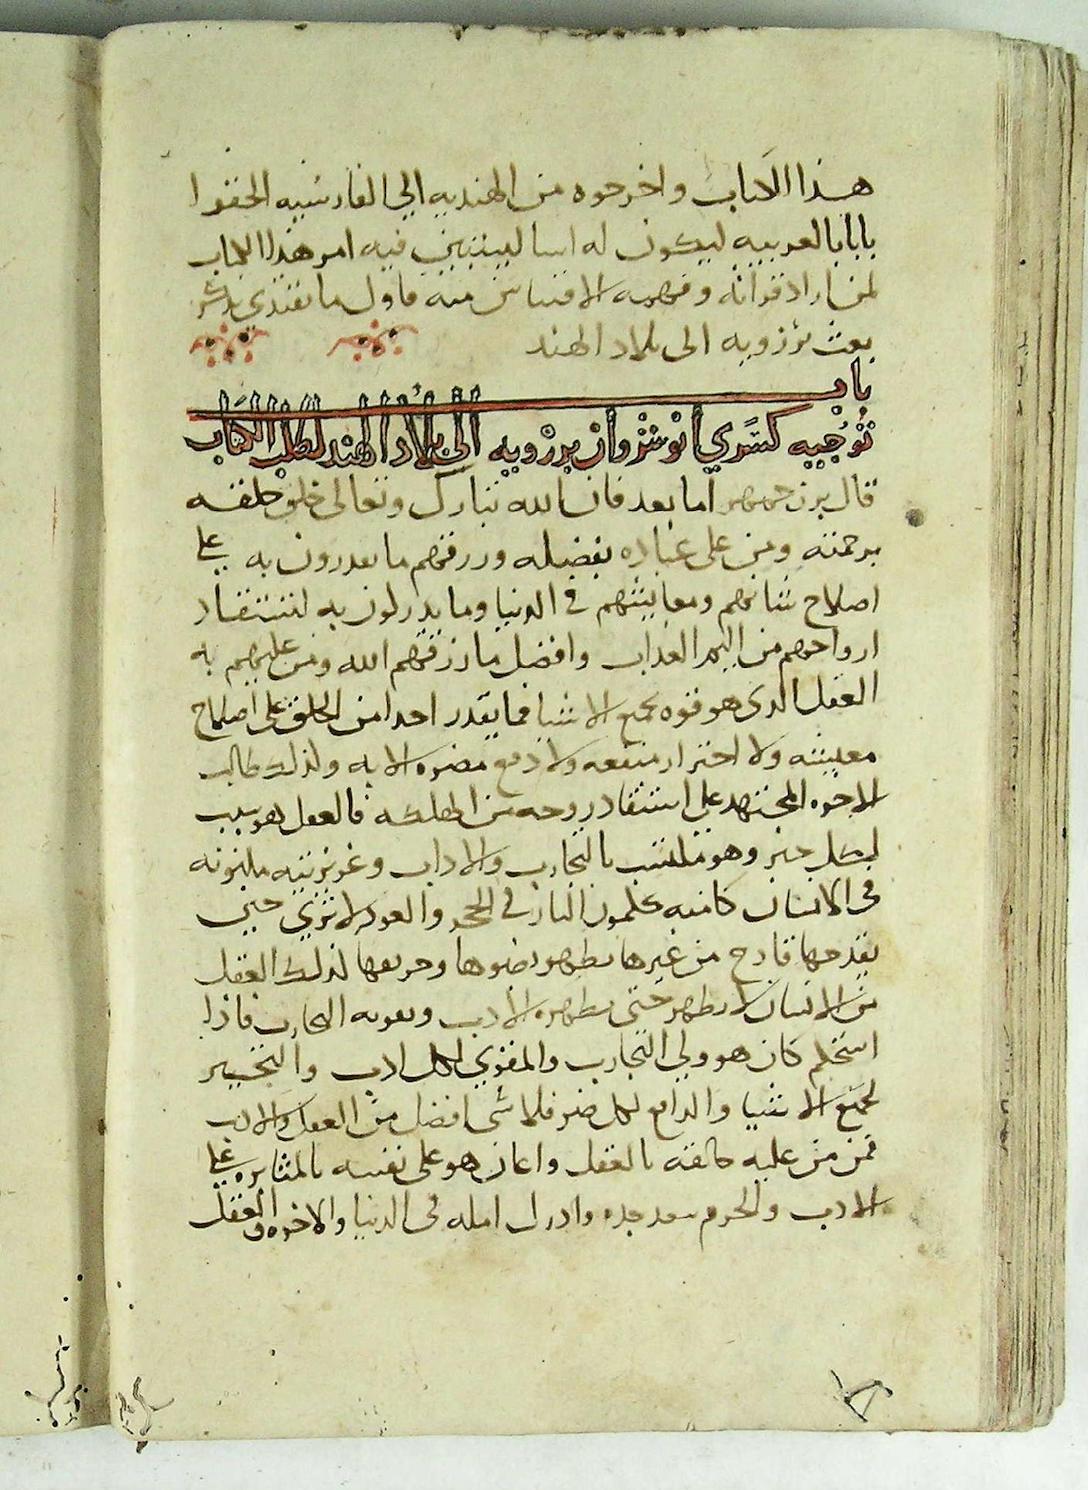 هذا الكتاب واخرجوه من الهنديه الي الفارسيه الحقوا
بابا بالعربيه ليكون له اسا ليستبين فيه امر هذا الكتاب
لمن اراد قراته وفهمه الاقتباس منه فاول ما نبتدي بذكر
بعث برزويه الى بلاد الهند
باب
توجيه كسري انوشروان برزويه الى بلاد الهند لطلب الكتاب
قال برزجمهر اما بعد فان الله تبارك وتعالى خلق خلقه
برحمته ومن على عباده بفضله ورزقهم ما يقدرون به على
اصلاح شانهم ومعايشهم في الدنيا وما يدركون به استنقاذ
ارواحهم من اليم العذاب وافضل ما رزقهم الله ومن عليهم به
العقل الذي هو قوه لجميع الاشيا فما يقدر احدا من الخلق على اصلاح
معيشته ولا احتراز منفعه ولا دفع مضره الا به وكذلك طالب
الاخره المجتهد على استنقاذ روحه من الهلكه فالعقل هو سبب
لكل خير وهو مكتسب بالتجارب والاداب وغريزته مكنونه
في الانسان كامنه ككمون النار في الحجر والعود لا ترى حتى
يقدحها قادح من غيرها يظهر ضوها وحريقها كذلك العقل
من الانسان لا يظهر حتى يظهره الادب وتقويه التجارب فاذا
استحكم كان هو ولي التجارب والمقوي لكل ادب والتخيير
لجميع الاشيا والدافع لكل ضر فلا شي افضل من العقل والادب
فمن من عليه خالقه بالعقل واعان هو على نفسه بالمثابره على
الادب والحرم سعد جده وادرك امله في الدنيا والاخره والعقل